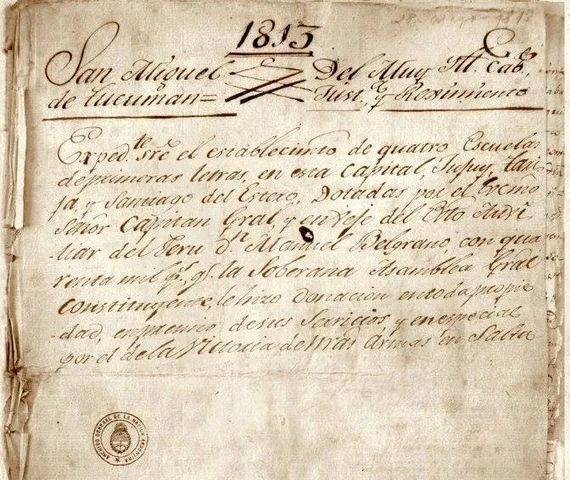 1813
San Miguel Del Muy Ill. Cab,
de tucuman= Just, y Reximiento
Exped.te sre el establecimto de quatro Escuelas
de primeras letras, en esta Capital, Jujuy, Tari-
ja, y Santiago del Estero, Dotadas por el Excmo
Señor Capitan Gral, y en Jefe del Exto Auxi-
liar del Peru Dn Manuel Belgrano, con qua-
renta mil ps. qe. la Soberana Asamblea Gral
Constituyente le hizo donacion en toda propie-
dad, en premio de sus Servicios, y en especial
por el de la Victoria de nras Armas en Salta
ARCHIVO GENERAL DE LA NACION ARGENTINA